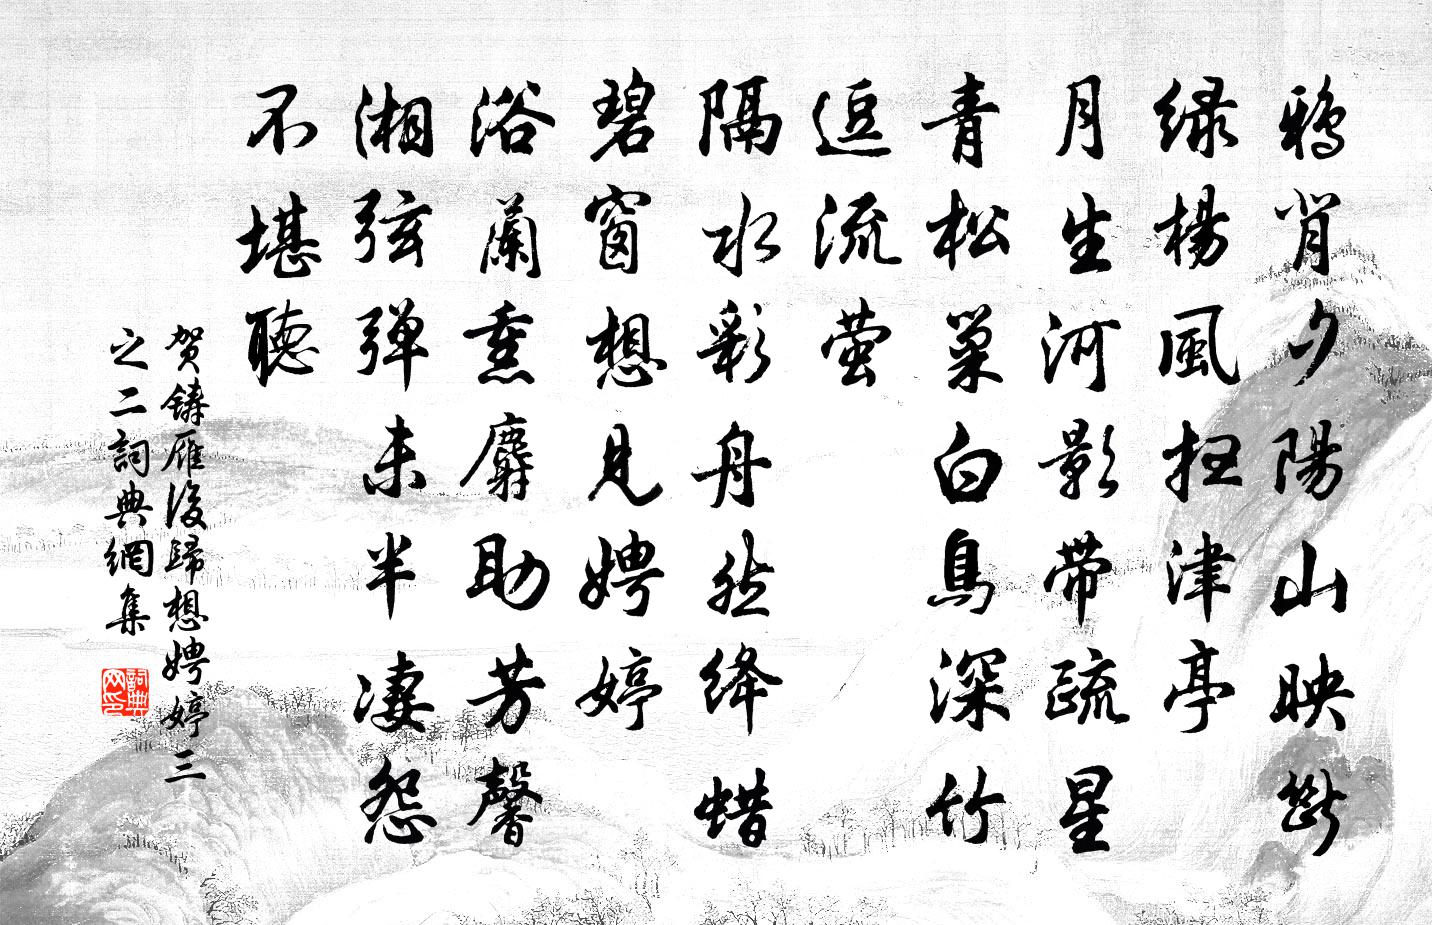 鴉背夕陽山映斷
綠楊風掃津亭
月生河影帶疏星
青松巢白鳥深竹
逗流螢
隔水彩舟然絳蜡
碧窗想見娉婷
浴蘭熏麝助芳馨
湘弦彈未半凄怨
不堪聽
賀鑄雁後歸想娉婷三
之二詞典網集
詞典
网印